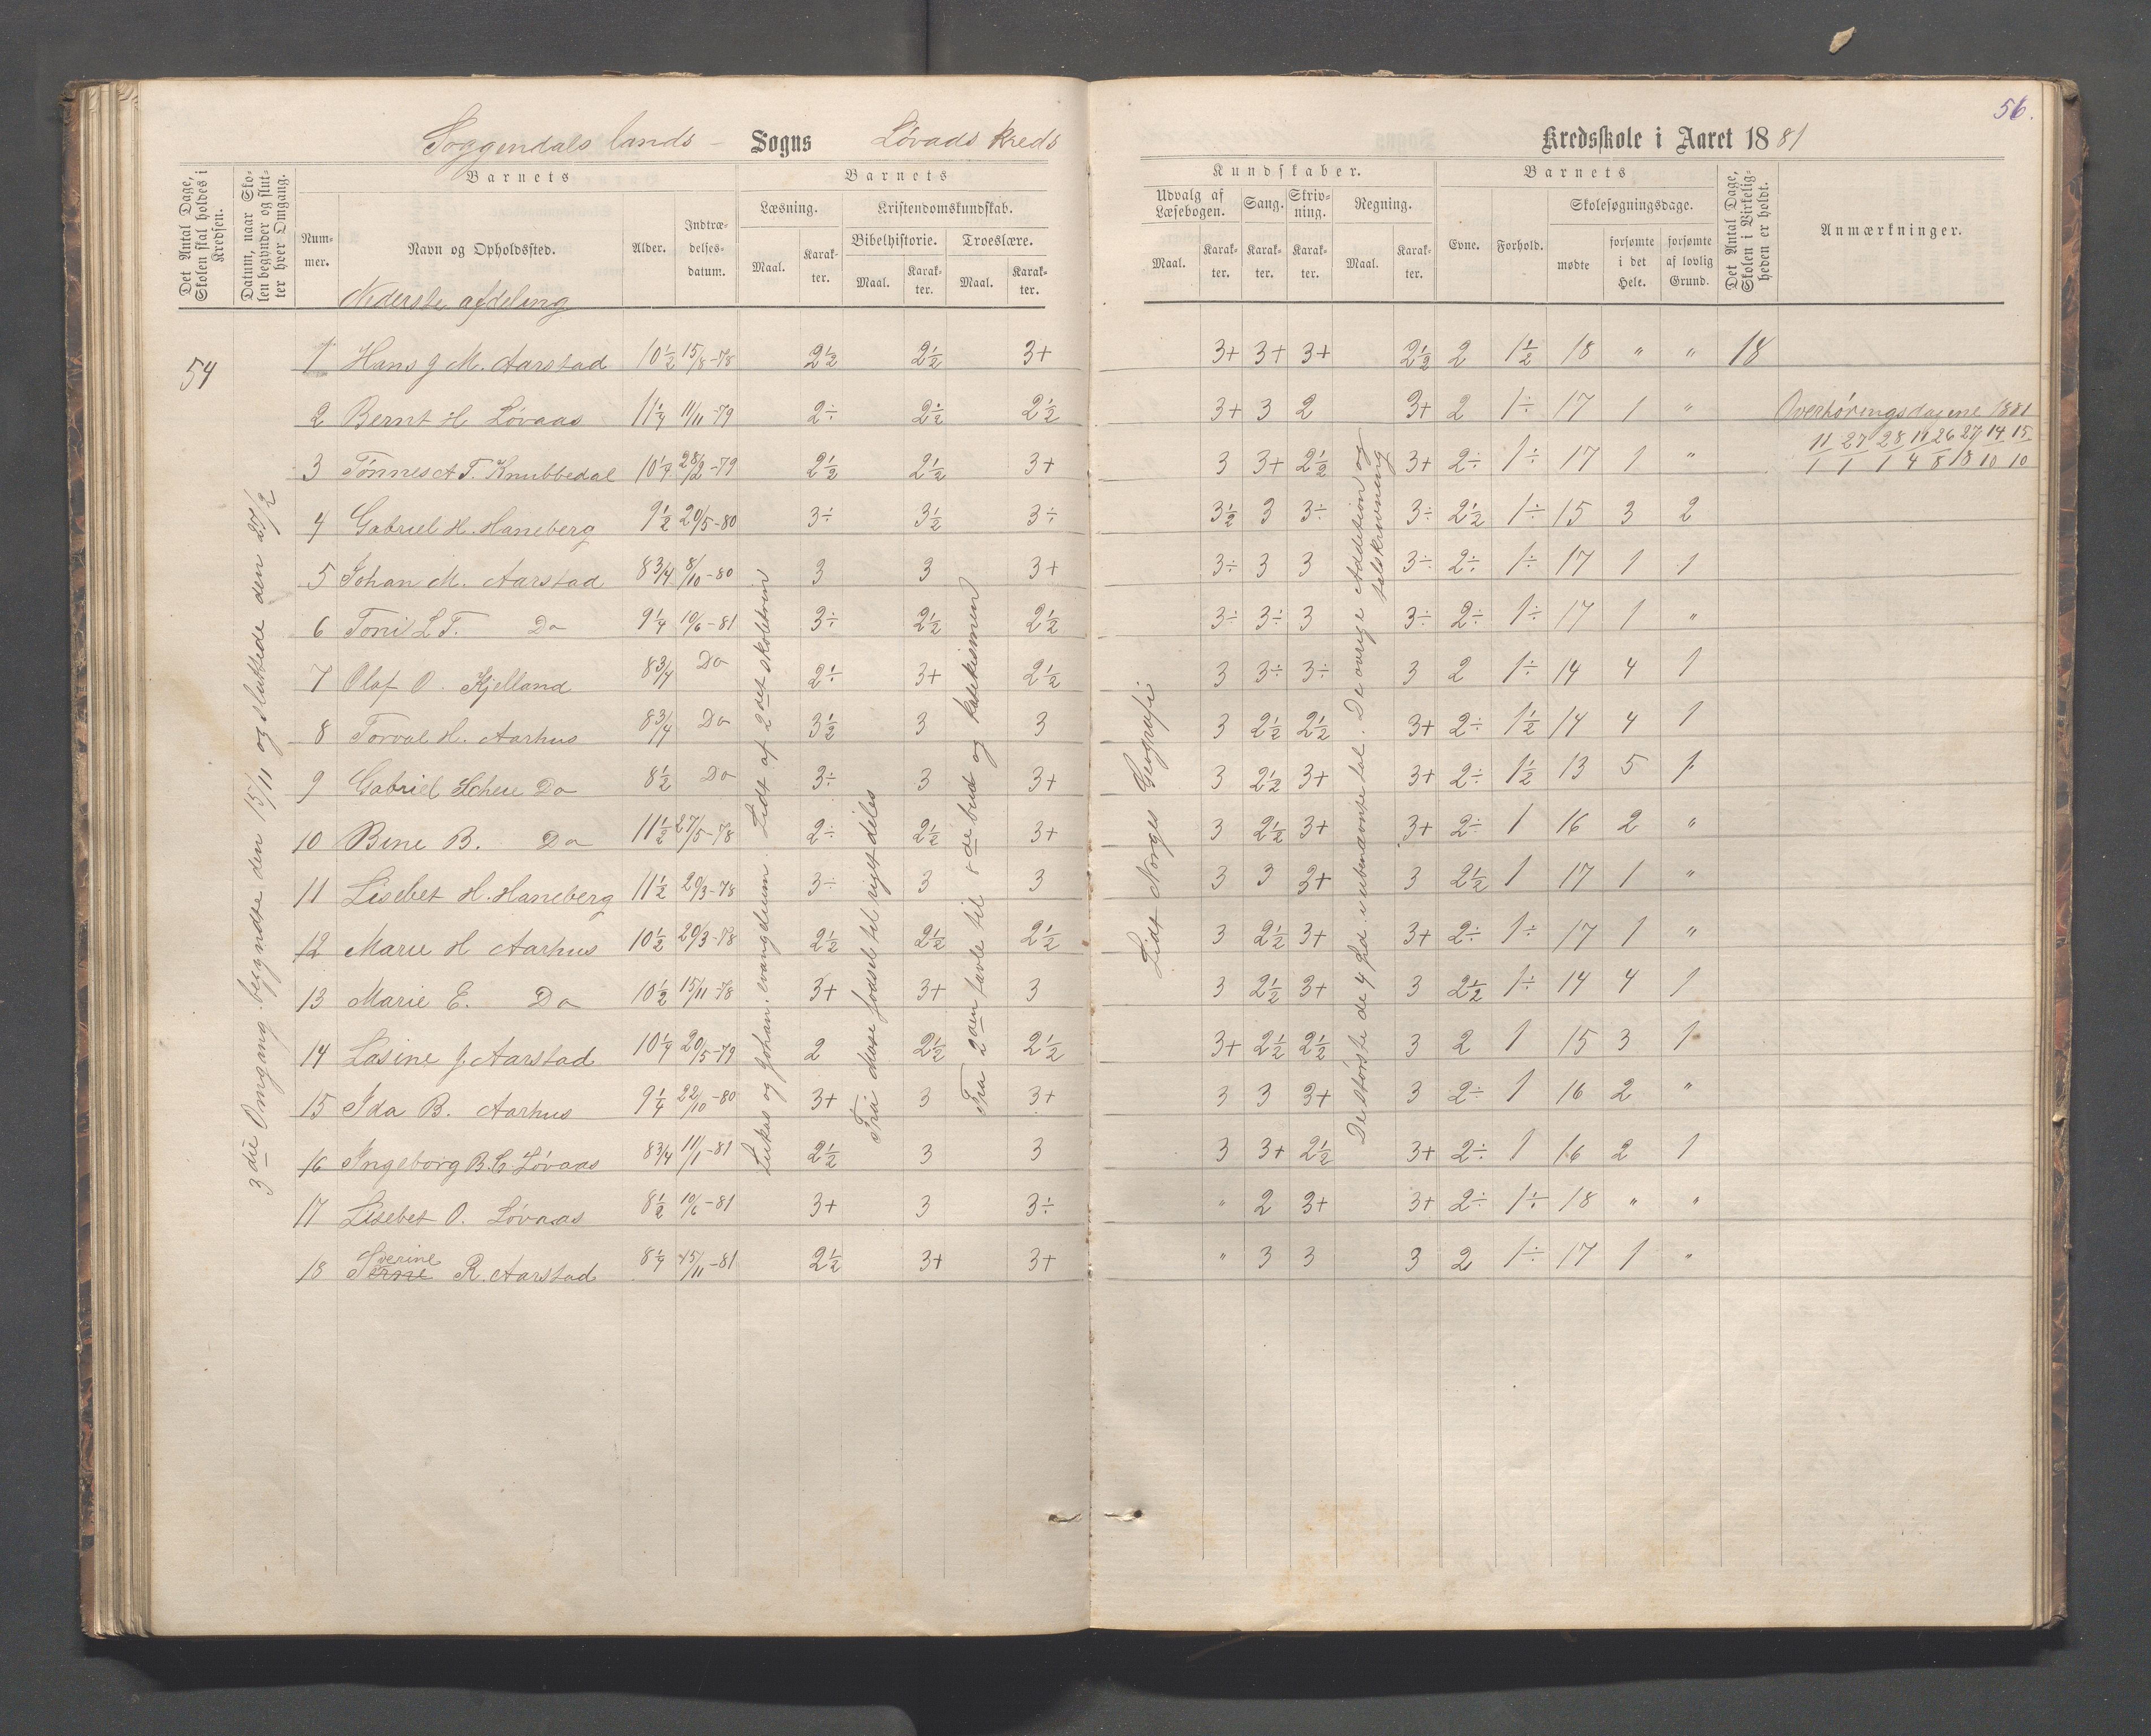 56.
Soggendals lands- Sogns Løvaas Kreds
Kredsskole i Aaret 1881
Det Antal Dage, Skolen skal holdes i Kredsen.
Datum, naar Skolen begynder og slutter hver Omgang.
Barnets
Nummer.
Navn og Opholdssted.
Alder.
Indtrædelsesdatum.
Barnets
Læsning.
Maal.
Karakter.
Kristendomskundskab.
Bibelhistorie.
Maal.
Karakter.
Troeslære.
Maal.
Karakter.
Kundskaber.
Udvalg af Læsebogen.
Maal.
Karakter.
Sang.
Karakter.
Skrivning.
Karakter.
Regning.
Maal.
Karakter.
Barnets
Evne.
Forhold.
Skolesøgningsdage.
mødte
forsømte i det Hele.
forsømte af lovlig Grund.
Det Antal Dage, Skolen i Virkeligheden er holdt.
Anmærkninger.
Nederste afdeling
54
3die Omgang begyndte den 15/11 og sluttede den 27/2
Lukas og Johan. evangelium. Lidt af 2det skoletrin
Fra Mose fødsel til riget deles
Fra 2den tavle til 8de bud og katekismen
Lidt Norges Geografi
De største de 4 Rd. i ubenævnte tal. De øvrige Addition og
talskrivning
1 Hans J M. Aarstad 10½ 15/8-78 2½ 2½ 3+ 3+ 3+ 3+ 2½ 2 1½ 18 " " 18
2 Bernt H Løvaas 11¼ 11/11-79 2÷ 2½ 2½ 3+ 3 2 3+ 2 1÷ 17 1 " Overhøringsdagene 1881
11/1 27/1 28/1 11/4 26/8 27/8 14/10 15/10
3 Tønnes A T. Knubbedal 10¼ 28/2-79 2½ 2½ 3+ 3 3+ 2½ 3+ 2÷ 1÷ 17 1 "
4 Gabriel H. Haneberg 9½ 20/5-80 3÷ 3½ 3÷ 3½ 3 3÷ 3÷ 2½ 1÷ 15 3 2
5 Johan M. Aarstad 8¾ 8/10-80 3 3 3+ 3÷ 3 3 3÷ 2÷ 1÷ 17 1 1
6 Toni L T. Do 9¼ 10/6-81 3÷ 2½ 2½ 3÷ 3÷ 3 3÷ 2÷ 1÷ 17 1 "
7 Olaf O. Kjelland 8¾ Do 2÷ 3+ 2½ 3 3÷ 3÷ 3 2 1÷ 14 4 1
8 Torval H. Aarhus 8¾ Do 3½ 3 3 3 2½ 2½ 3+ 2÷ 1½ 14 4 1
9 Gabriel Scheie Do 8½ Do 3÷ 3 3+ 3 2½ 3+ 3+ 2÷ 1½ 13 5 1
10 Bine B. Do 11½ 27/5-78 2÷ 2½ 3+ 3 2½ 3+ 3+ 2÷ 1 16 2 "
11 Lisebet H. Haneberg 11½ 20/3-78 3÷ 3 3 3 3 3+ 3 2½ 1 17 1 "
12 Marie H Aarhus 10½ 20/3-78 2½ 2½ 2½ 3 2½ 3+ 3+ 2÷ 1÷ 17 1 "
13 Marie E. Do 10½ 15/11-78 3+ 3+ 3 3 2½ 3+ 3 2½ 1÷ 14 4 1
14 Lasine J. Aarstad 10¼ 20/5-79 2 2½ 2½ 3+ 2½ 2½ 3 2 1 15 3 1
15 Ida B. Aarhus 9¼ 22/10-80 3+ 3 3+ 3 3 3+ 3 2÷ 1 16 2 "
16 Ingeborg B. C. Løvaas 8¾ 11/1-81 2½ 3 3 3 3+ 2½ 3+ 2÷ 1 16 2 1
17 Lisebet O. Løvaas 8½ 10/6-81 3+ 3 3÷ " 2 3+ 3+ 2÷ 1÷ 18 " "
18 Severine R. Aarstad 8¼ 15/11-81 2½ 3+ 3+ " 3 3 3 2 1÷ 17 1 "